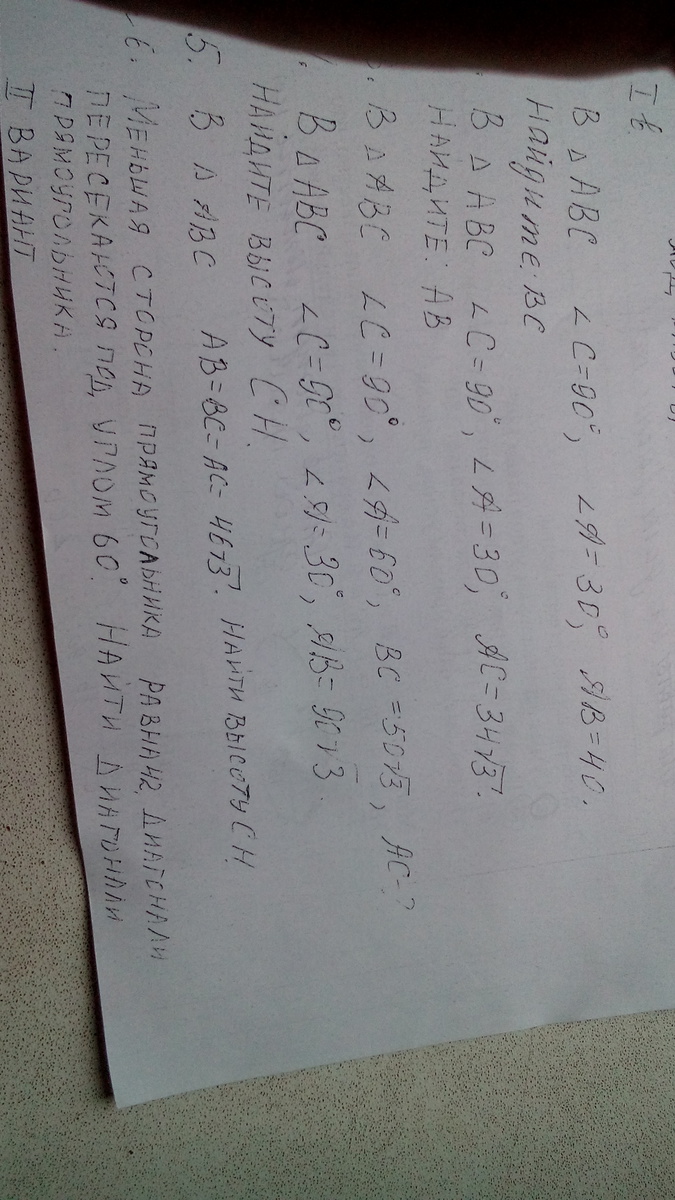 I в.
В △ ABC ∠C=90°, ∠A=30°, AB=40.
Найдите: BC
В △ ABC ∠C=90°, ∠A=30°, AC=34√3.
НАЙДИТЕ: AB
В △ ABC ∠C=90°, ∠A=60°, BC=50√3, AC-?
В △ ABC ∠C=90°, ∠A=30°, AB=90√3.
НАЙДИТЕ ВЫСОТУ CH.
5. В △ ABC AB=BC=AC=46√3. НАЙТИ ВЫСОТЫ CH
6. МЕНЬШАЯ СТОРОНА ПРЯМОУГОЛЬНИКА РАВНА ДИАГОНАЛИ
ПЕРЕСЕКАЮТСЯ ПОД УГЛОМ 60°. НАЙТИ ДИАГОНАЛИ
ПРЯМОУГОЛЬНИКА.
II ВАРИАНТ